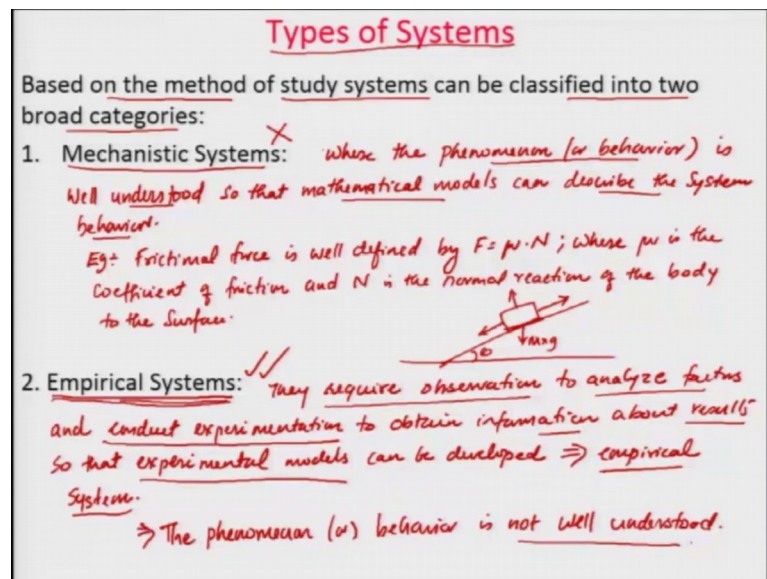 Types of Systems
Based on the method of study systems can be classified into two
broad categories:
1. Mechanistic Systems: where the phenomenon (or behavior) is
well understood so that mathematical models can describe the System
behavior.
Eg:- Frictional force is well defined by F = μ·N ; where μ is the
Coefficient of friction and N is the normal reaction of the body
to the surface.
θ M×g
2. Empirical Systems: They require observation to analyze factors
and conduct experimentation to obtain information about results
so that experimental models can be developed ⇒ empirical
System.
⇒ The phenomenon (or) behavior is not well understood.